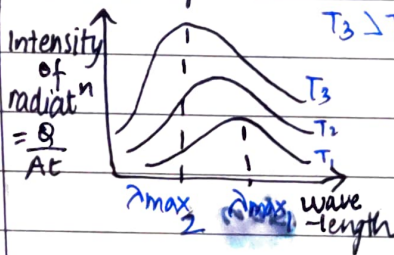 T₃ > T
Intensity
of
radiatⁿ
= Q
At
T₃
T₂
T₁
λmax₂ λmax₁ wave
-length